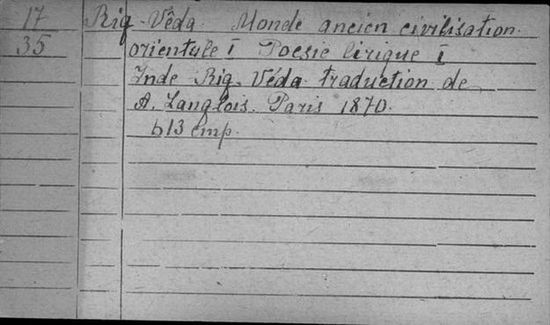 17 Rig-Véda. Monde ancien civilisation
35 orientale I Poesie lirique I
Inde Rig-Véda traduction de
A. Langlois. Paris 1870.
613 стр.